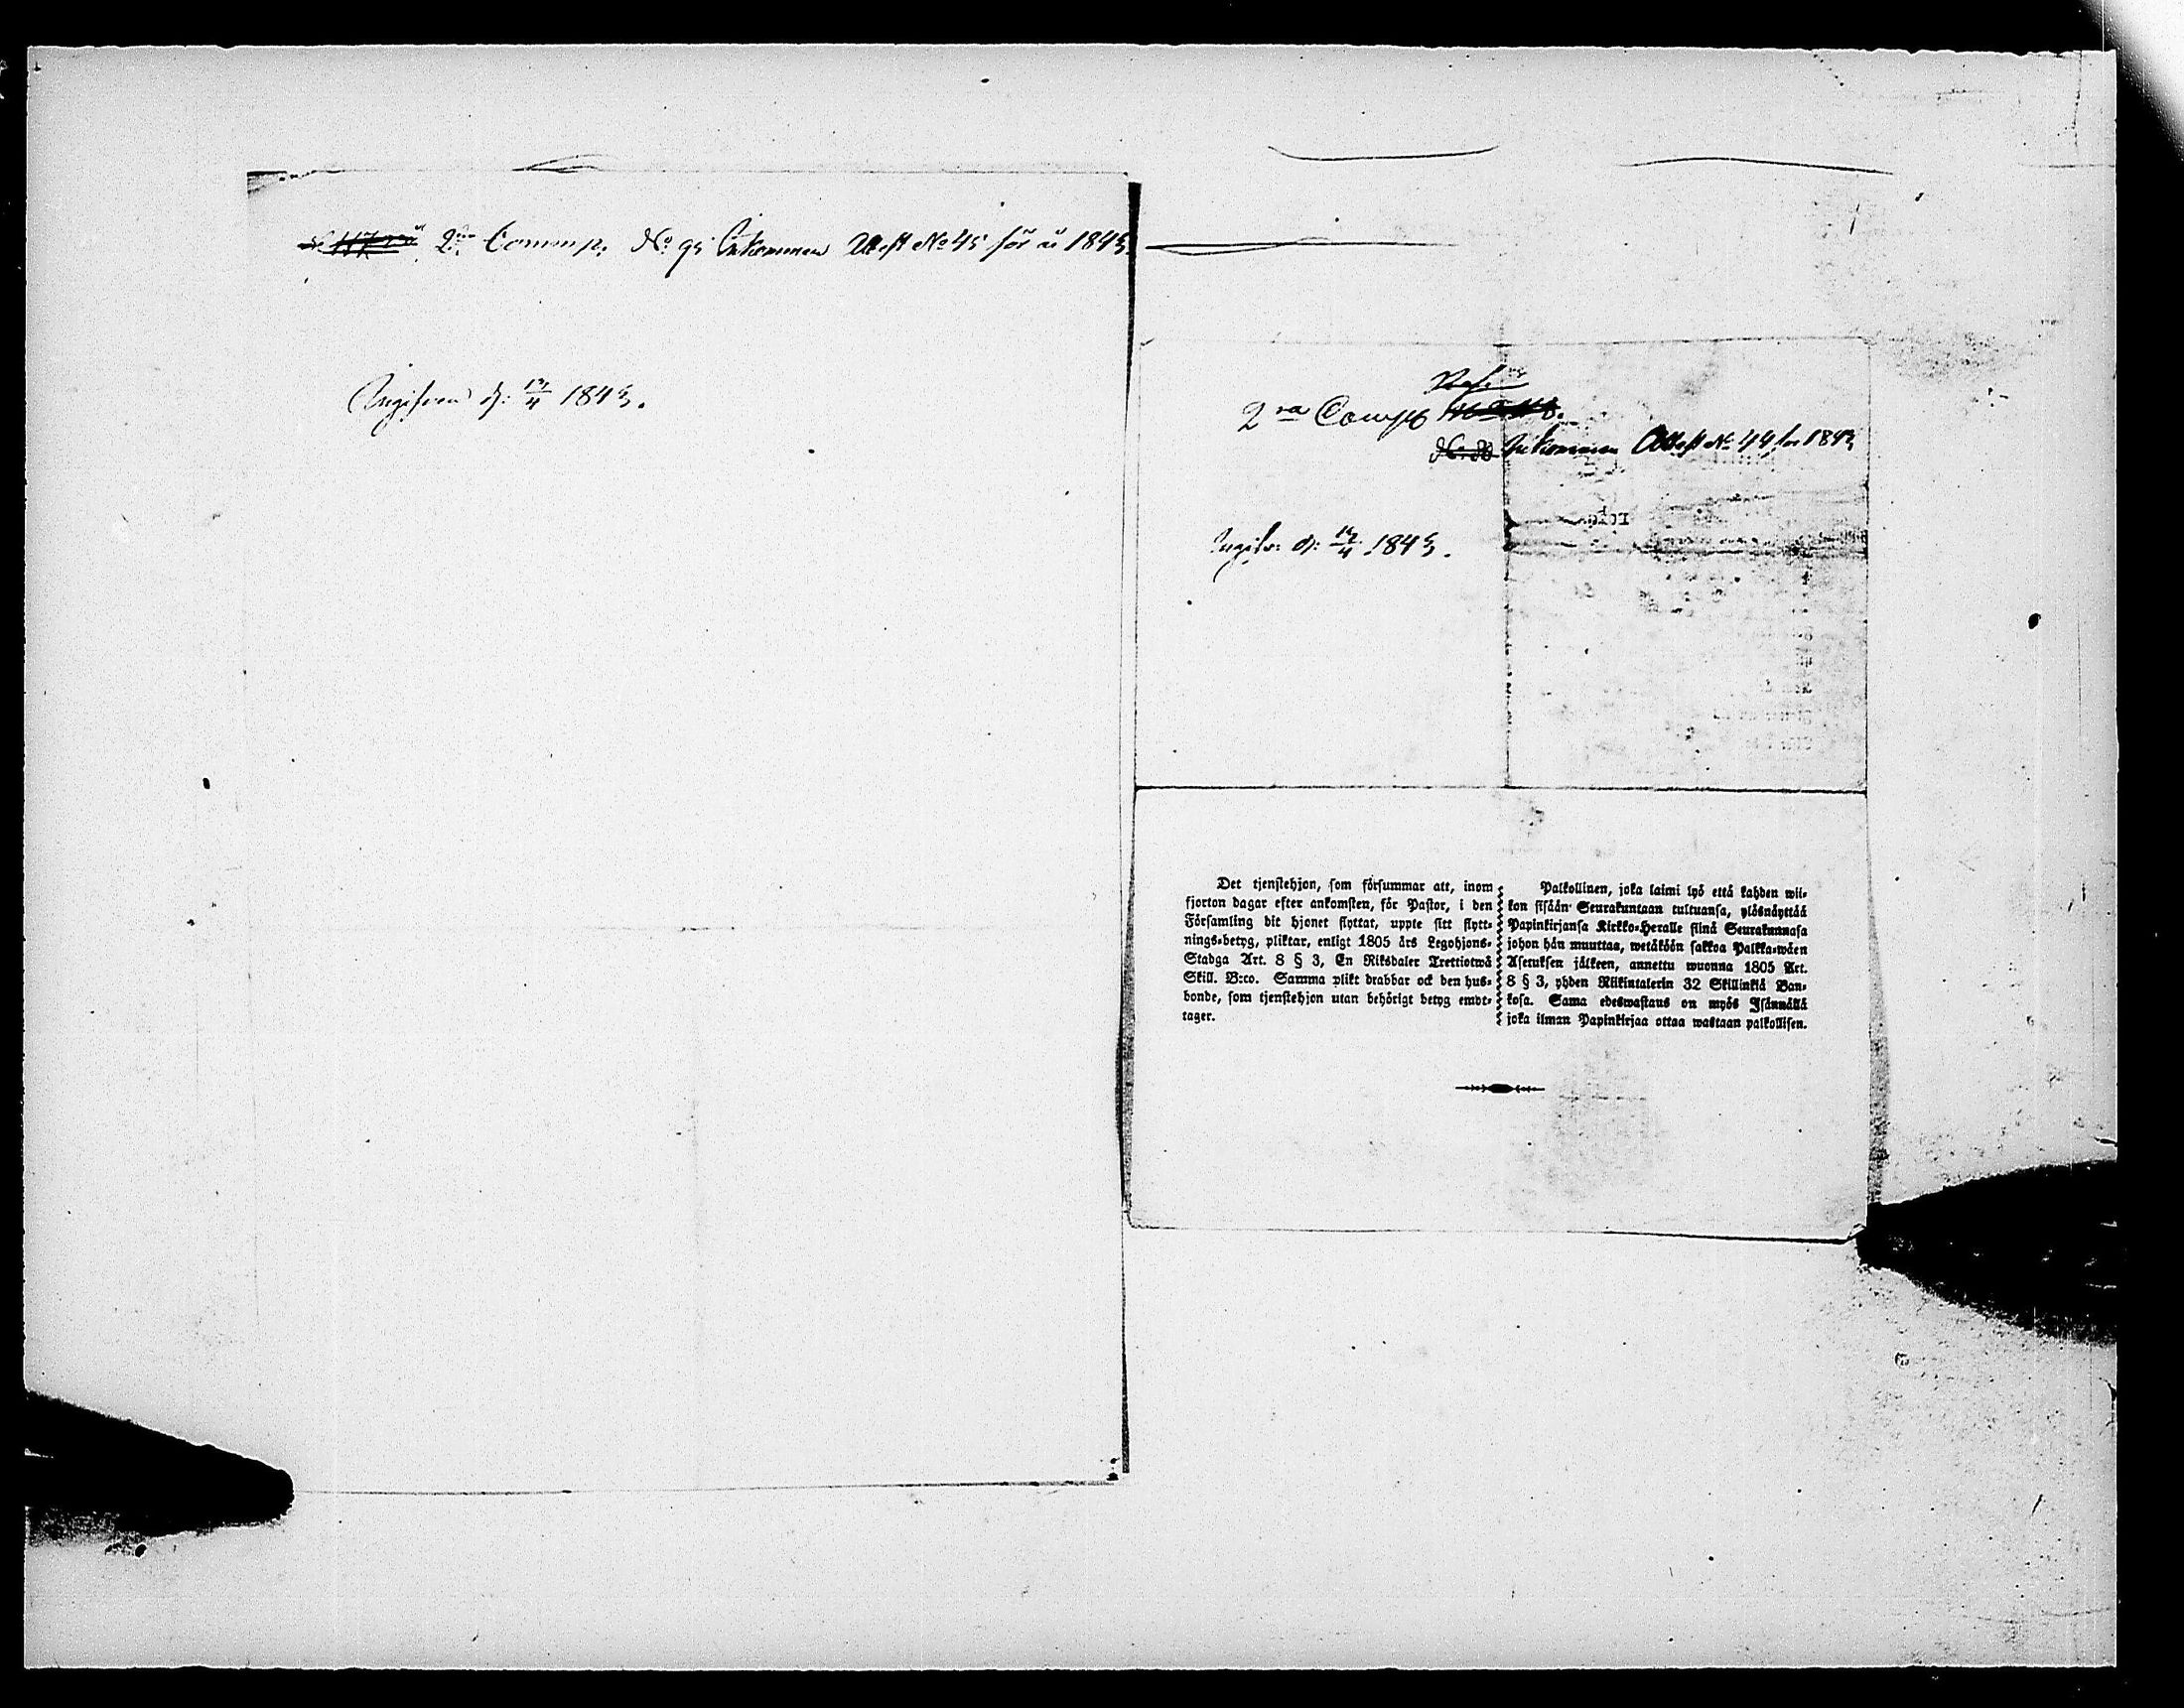 2:dra Comp. No 95 Inkommen Attest No 45 för år 1843.
Ingifven d: 1843.
2ra Comp
Inkommen Attest No 44 för 1843
Ingifv: d: 1843.
Det tjenstehjon, som försummar att, inom
fjorton dagar efter ankomsten, för Pastor, i den
Församling dit hjonet flyttat, uppte sitt flytt-
nings-betyg, pliktar, enligt 1805 års Legohjons-
Stadga Art. 8 § 3, En Riksdaler Trettiotwå
Skill. B:co. Samma plikt drabbar ock den hus-
bonde, som tjenstehjon utan behörigt betyg emot-
tager.
Palkollinen, joka laimi lyö että kahden wii-
kon sisään Seurakuntaan tultuansa, ylösnäyttää
Papinkirjansa Kirkko-Heralle siinä Seurakunnasa
johon hän muuttaa, wetäköön sakkoa Palkka-wäen
Asetuksen jälkeen, annettu wuonna 1805 Art.
8 § 3, yhden Riikintalerin 32 Skillinkiä Ban-
kosa. Sama edeswastaus on myös Isännällä
joka ilman Papinkirjaa ottaa wastaan palkollisen.